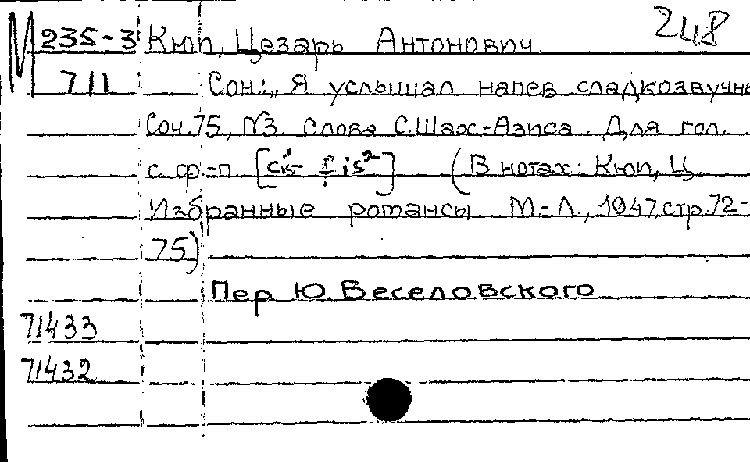 248
М 235-3 Кюи, Цезарь Антонович
711 Сон:„ Я услышал напев сладкозвучны
Соч.75, №3. Слова С.Шах-Азиса. Для гол.
с ф-п (В нотах: Кюи, Ц.
Избранные романсы М-Л., 1947, стр.72-
75)
Пер Ю. Веселовского
71433
71432